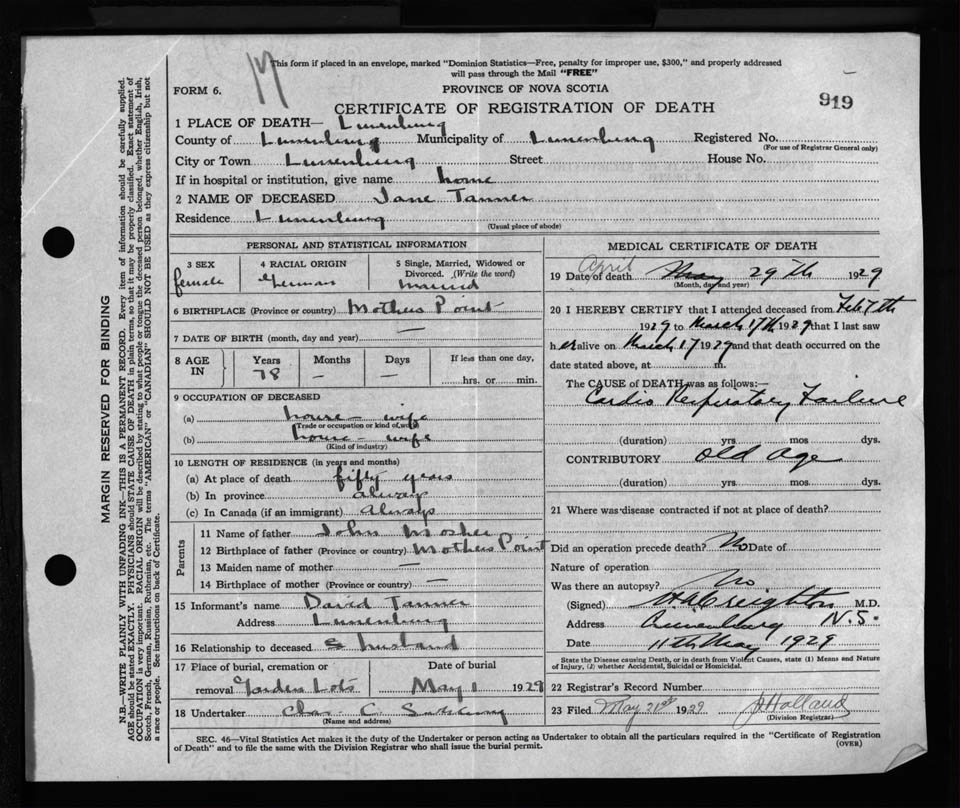 17
This form if placed in an envelope, marked "Dominion Statistics—Free, penalty for improper use, $300," and properly addressed
will pass through the Mail "FREE"
FORM 6.
PROVINCE OF NOVA SCOTIA
919
CERTIFICATE OF REGISTRATION OF DEATH
1 PLACE OF DEATH— Lunenburg
County of Lunenburg Municipality of Lunenburg Registered No.
(For use of Registrar General only)
City or Town Lunenburg Street House No.
If in hospital or institution, give name home
2 NAME OF DECEASED Jane Tanner
Residence Lunenburg
(Usual place of abode)
PERSONAL AND STATISTICAL INFORMATION
3 SEX 4 RACIAL ORIGIN 5 Single, Married, Widowed or
Divorced. (Write the word)
female German married
6 BIRTHPLACE (Province or country) Mothers Point
7 DATE OF BIRTH (month, day and year) —
8 AGE IN Years Months Days If less than one day,
78 — — hrs. or min.
9 OCCUPATION OF DECEASED
(a) house-wife
(Trade or occupation or kind of work)
(b) house-wife
(Kind of industry)
10 LENGTH OF RESIDENCE (in years and months)
(a) At place of death fifty years
(b) In province always
(c) In Canada (if an immigrant) Always
Parents
11 Name of father John Mosher
12 Birthplace of father (Province or country) Mothers Point
13 Maiden name of mother —
14 Birthplace of mother (Province or country) —
15 Informant's name David Tanner
Address Lunenburg
16 Relationship to deceased husband
17 Place of burial, cremation or Date of burial
removal Garden Lots May 1 1929
18 Undertaker Chas. C.
(Name and address)
MEDICAL CERTIFICATE OF DEATH
April
19 Date of death May 29th 1929
(Month, day and year)
20 I HEREBY CERTIFY that I attended deceased from Feb 7th
1929 to March 17th 1929 that I last saw
her alive on March 17 1929 and that death occurred on the
date stated above, at m.
The CAUSE of DEATH was as follows:—
Cardio Respiratory Failure
(duration) yrs. mos. dys.
CONTRIBUTORY old Age
(duration) yrs. mos. dys.
21 Where was disease contracted if not at place of death?
Did an operation precede death? No Date of
Nature of operation
Was there an autopsy? No
(Signed) Creighton M.D.
Address Lunenburg N.S.
Date 11th May 1929
State the Disease causing Death, or in death from Violent Causes, state (1) Means and Nature
of Injury, (2) whether Accidental, Suicidal or Homicidal.
22 Registrar's Record Number
23 Filed May 21st 1929 Holland
(Division Registrar)
SEC. 46—Vital Statistics Act makes it the duty of the Undertaker or person acting as Undertaker to obtain all the particulars required in the "Certificate of Registration
of Death" and to file the same with the Division Registrar who shall issue the burial permit.
(OVER)
MARGIN RESERVED FOR BINDING
N.B.—WRITE PLAINLY WITH UNFADING INK—THIS IS A PERMANENT RECORD. Every item of information should be carefully supplied.
AGE should be stated EXACTLY. PHYSICIANS should STATE CAUSE OF DEATH in plain terms, so that it may be properly classified. Exact statement of
OCCUPATION is very important. RACIAL ORIGIN will be described by stating to what people or tongue the deceased person belonged, whether English, Irish,
Scotch, French, German, Russian, Ruthenian, etc. The terms "AMERICAN" or "CANADIAN" SHOULD NOT BE USED as they express citizenship but not
a race or people. See instructions on back of Certificate.